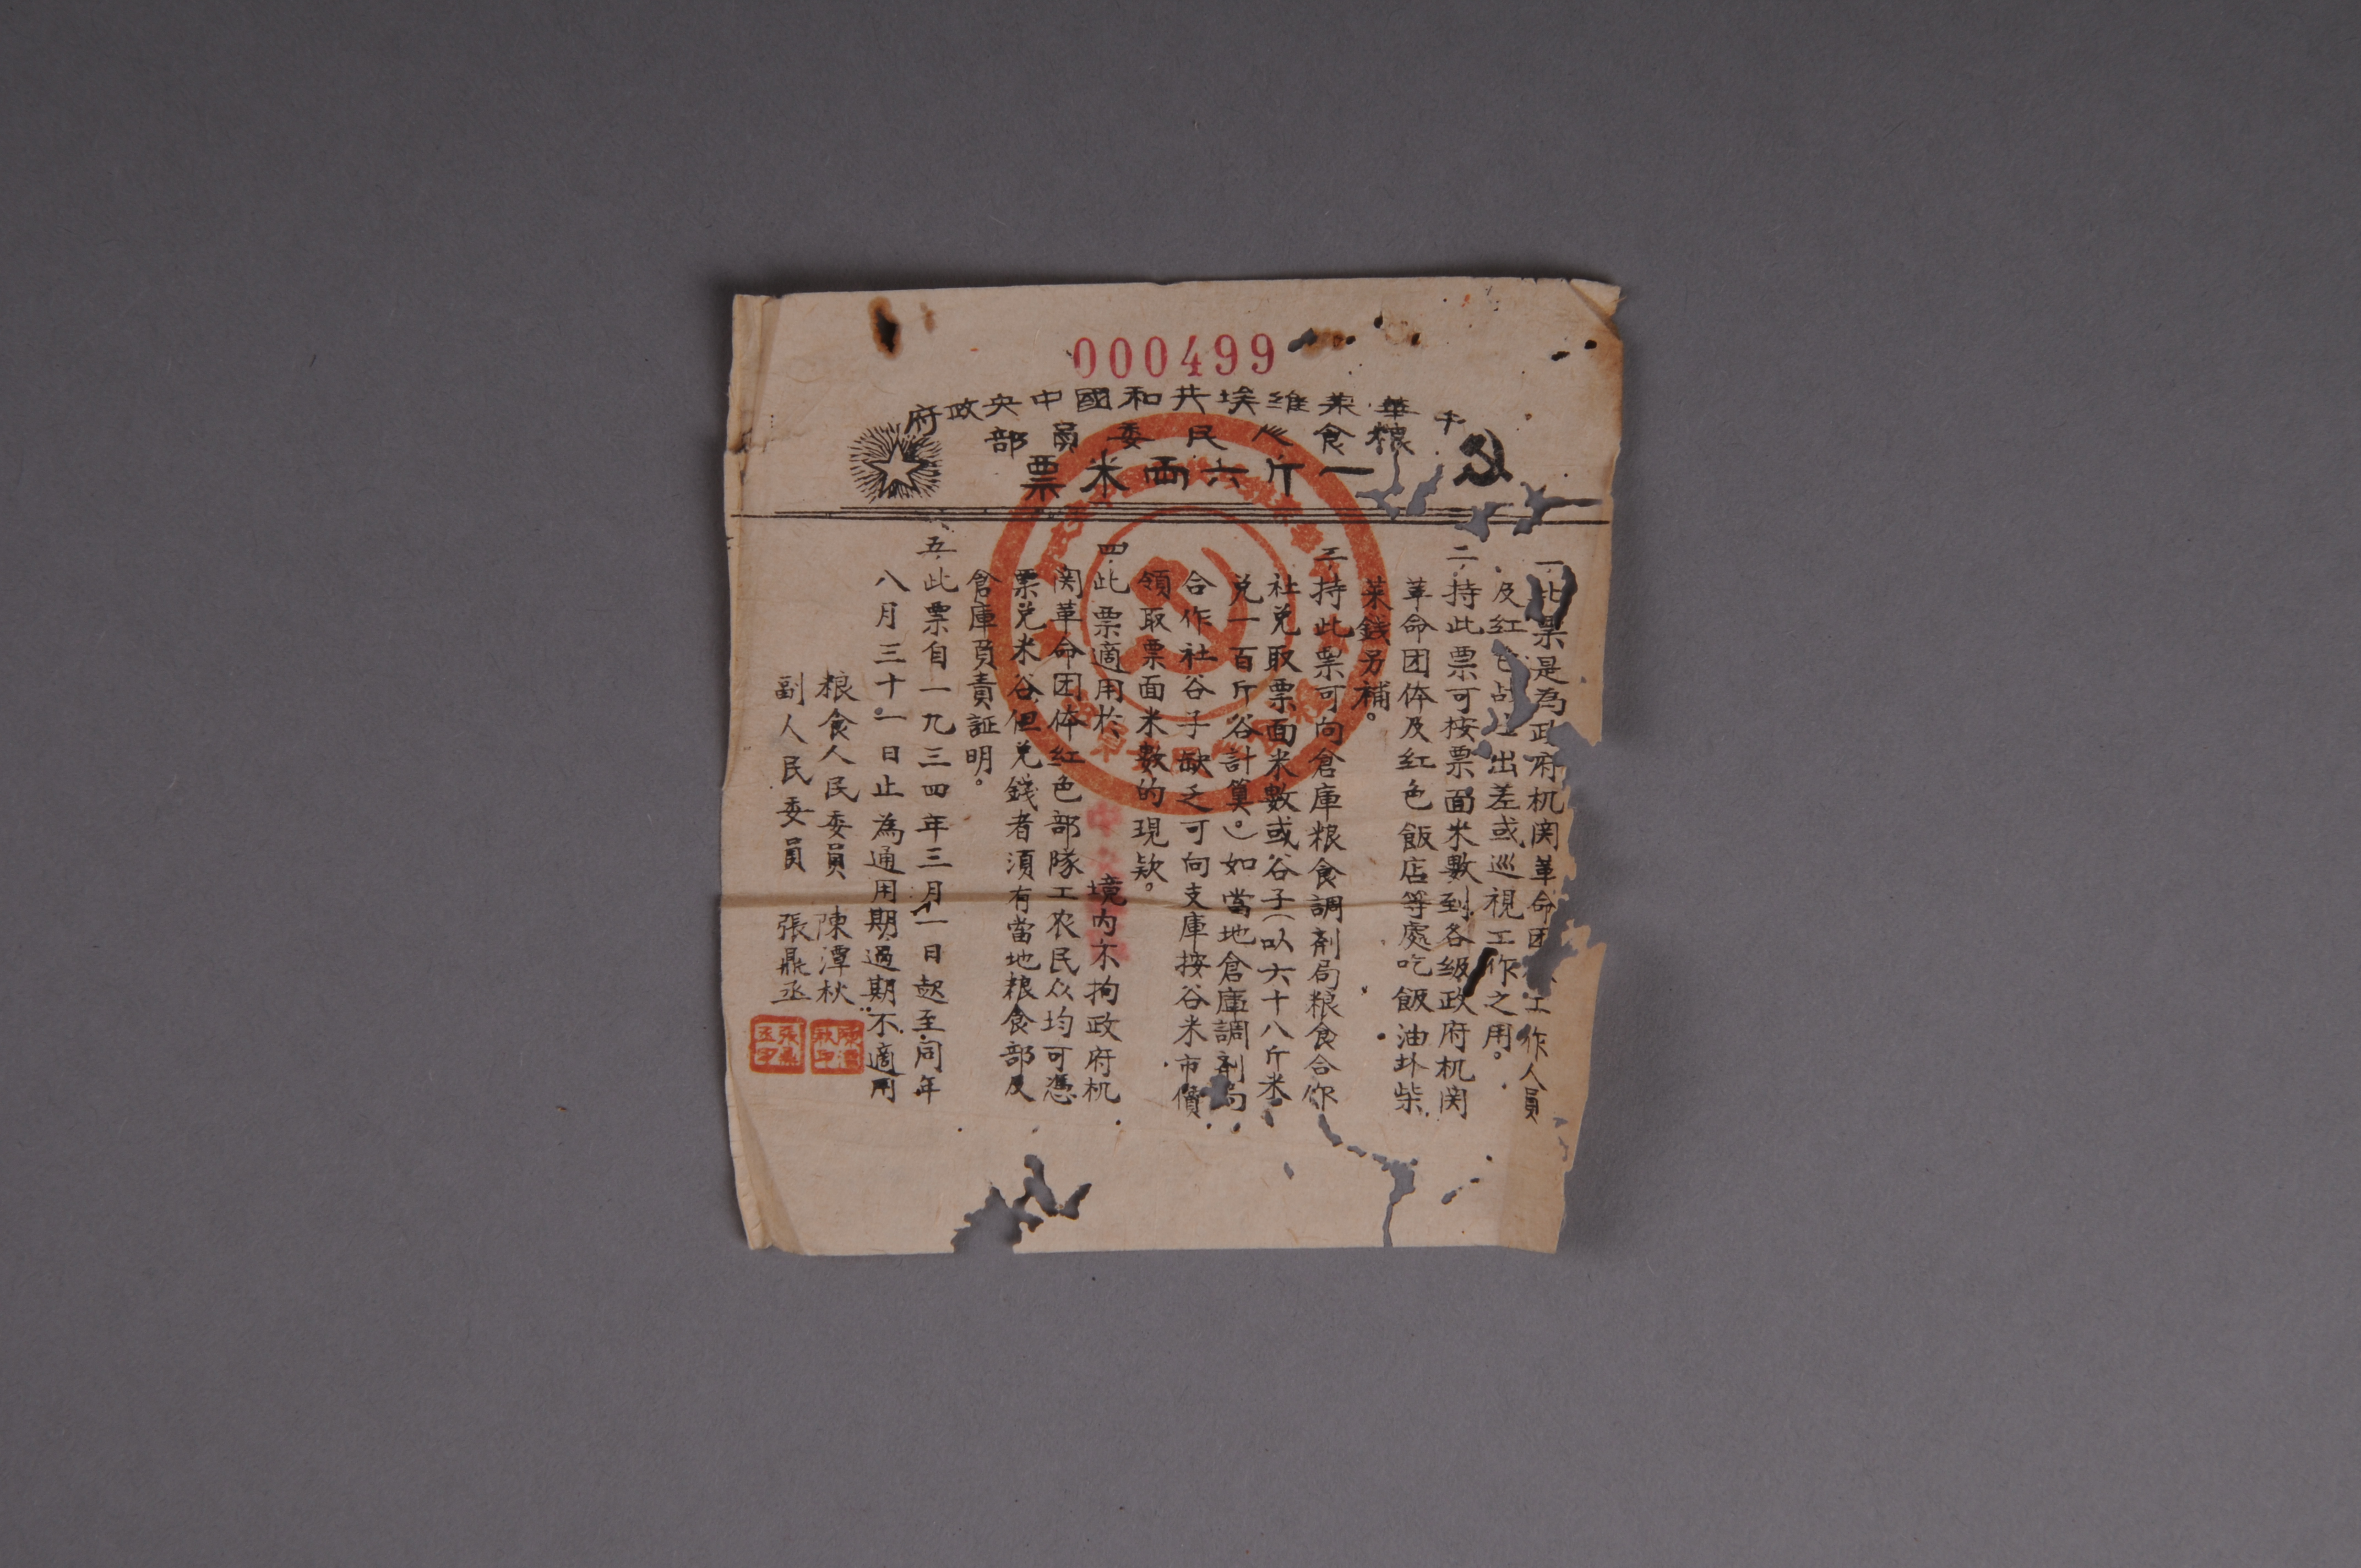 000499
中華蘇維埃共和國中央政府
粮食人民委員部
一斤六両米票
一、此票是為政府机関革命团工作人員
及紅色战士出差或巡視工作之用。
二、持此票可按票面米數到各级政府机関
革命团体及紅色飯店等處吃飯油塩柴
菜錢另補。
三、持此票可向倉庫粮食調剤局粮食合作
社兑取票面米數或谷子（以六十八斤米
兑一百斤谷計算。）如當地倉庫調剤局
合作社谷子缺乏可向支庫按谷米市價
領取票面米數的現欵。
四、此票適用於境内不拘政府机
関革命团体紅色部隊工农民众均可憑
票兑米谷但兑錢者須有當地粮食部及
倉庫負責証明。
五、此票自一九三四年三月一日起至同年
八月三十一日止為通用期過期不適用
粮食人民委員 陳潭秋
副人民委員 張鼎丞